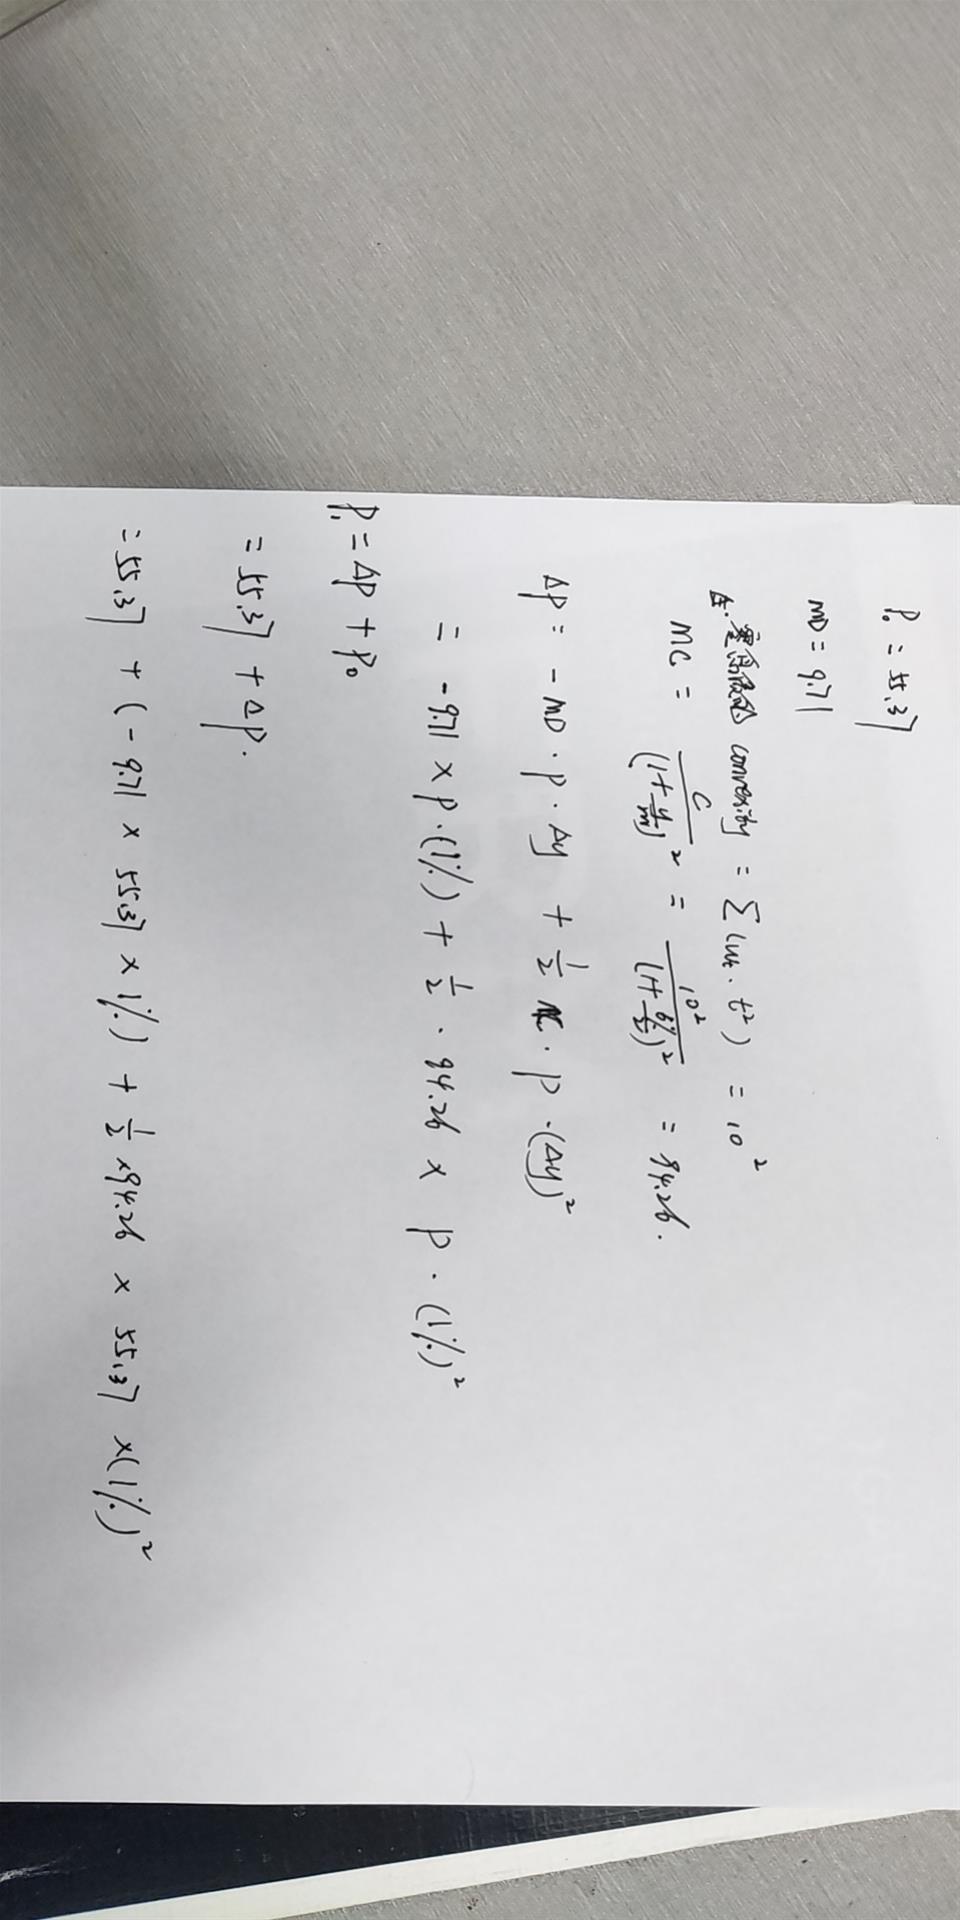 P₀ = 55.37
MD = 9.71
convexity = Σ(wt · t²) = 10²
MC = C/(1+y/m)² = 10²/(1+6%/2)² = 94.26.
ΔP = -MD · P · Δy + ½ MC · P · (Δy)²
= -9.71 × P · (1%) + ½ · 94.26 × P · (1%)²
P₁ = ΔP + P₀
= 55.37 + ΔP.
= 55.37 + (-9.71 × 55.37 × 1%) + ½ × 94.26 × 55.37 × (1%)²